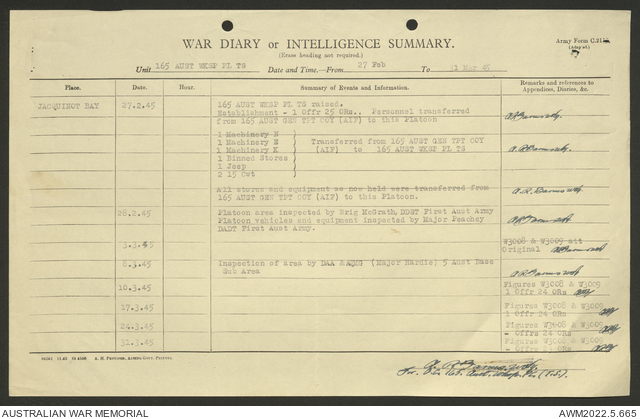 WAR DIARY or INTELLIGENCE SUMMARY.
(Erase heading not required.)
Army Form C.
Unit 165 AUST WKSP PL TS Date and Time.—From 27 Feb To 31 Mar 45
Place. Date. Hour. Summary of Events and Information. Remarks and references to Appendices, Diaries, &c.
JACQUINOT BAY 27.2.45 165 AUST WKSP PL TS raised.
Establishment - 1 Offr 25 ORs. Personnel transferred
from 165 AUST GEN TPT COY (AIF) to this Platoon
1 Machinery
1 Machinery Transferred from 165 AUST GEN TPT COY
1 Machinery K (AIF) to 165 AUST WKSP PL TS
1 Binned Stores
1 Jeep
2 15 Cwt
All stores and equipment as now held were transferred from
165 AUST GEN TPT COY (AIF) to this Platoon.
28.2.45 Platoon area inspected by Brig McGrath, DDST First Aust Army
Platoon vehicles and equipment inspected by Major Peachey
DADT First Aust Army.
3.3.45 W3008 & W3009 att
Original
8.3.45 Inspection of area by DAA & QMG (Major Hardie) 5 Aust Base
Sub Area
10.3.45 Figures W3008 & W3009
1 Offr 24 ORs
17.3.45 Figures W3008 & W3009
1 Offr 24 ORs
24.3.45 Figures W3008 & W3009
- Offr 24 ORs
31.3.45 Figures W3008 & W3009
- Offr 24 ORs
A. H. Pettifer, Acting Govt. Printer.
AUSTRALIAN WAR MEMORIAL
AWM2022.5.665